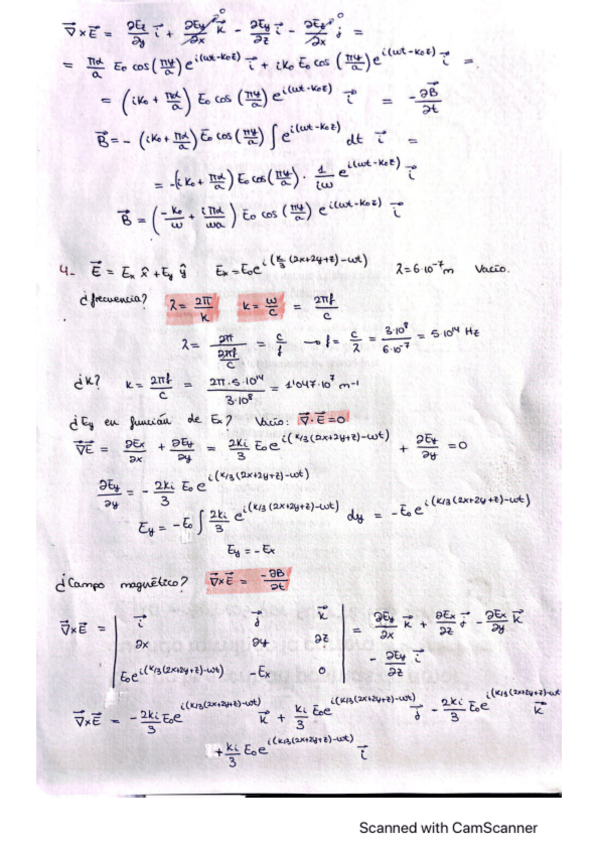 ∇⃗×E⃗ = ∂Ez/∂y i⃗ + ∂Ey/∂x k⃗ - ∂Ey/∂z i⃗ - ∂Ez/∂x j⃗ =
= πα/a E₀ cos(πy/a) e^{i(ωt-k₀z)} i⃗ + ik₀ E₀ cos(πy/a) e^{i(ωt-k₀z)} i⃗ =
= (ik₀ + πα/a) E₀ cos(πy/a) e^{i(ωt-k₀z)} i⃗ = -∂B⃗/∂t
B⃗ = - (ik₀ + πα/a) E₀ cos(πy/a) ∫ e^{i(ωt-k₀z)} dt i⃗ =
= -(ik₀ + πα/a) E₀ cos(πy/a) · 1/iω e^{i(ωt-k₀z)} i⃗
B⃗ = (-k₀/ω + iπα/ωa) E₀ cos(πy/a) e^{i(ωt-k₀z)} i⃗
4- E⃗ = Ex x̂ + Ey ŷ Ex = E₀e^{i(k/3(2x+2y+z)-ωt)} λ=6·10⁻⁷m Vacío.
¿frecuencia? λ = 2π/k k = ω/c = 2πf/c
λ = 2π/(2πf/c) = c/f → f = c/λ = 3·10⁸/6·10⁻⁷ = 5·10¹⁴ Hz
¿k? k = 2πf/c = 2π·5·10¹⁴/3·10⁸ = 1'047·10⁷ m⁻¹
¿Ey en función de Ex? Vacío: ∇⃗·E⃗=0
∇⃗E⃗ = ∂Ex/∂x + ∂Ey/∂y = 2ki/3 E₀e^{i(k/3(2x+2y+z)-ωt)} + ∂Ey/∂y = 0
∂Ey/∂y = - 2ki/3 E₀e^{i(k/3(2x+2y+z)-ωt)}
Ey = -E₀ ∫ 2ki/3 e^{i(k/3(2x+2y+z)-ωt)} dy = -E₀e^{i(k/3(2x+2y+z)-ωt)}
Ey = -Ex
¿Campo magnético? ∇⃗×E⃗ = -∂B/∂t
∇⃗×E⃗ = | i⃗ j⃗ k⃗ |
| ∂x ∂y ∂z | = ∂Ey/∂x k⃗ + ∂Ex/∂z j⃗ - ∂Ex/∂y k⃗
| E₀e^{i(k/3(2x+2y+z)-ωt)} -Ex 0 | - ∂Ey/∂z i⃗
∇⃗×E⃗ = - 2ki/3 E₀e^{i(k/3(2x+2y+z)-ωt)} k⃗ + ki/3 E₀e^{i(k/3(2x+2y+z)-ωt)} j⃗ - 2ki/3 E₀e^{i(k/3(2x+2y+z)-ωt)} k⃗
+ ki/3 E₀e^{i(k/3(2x+2y+z)-ωt)} i⃗
Scanned with CamScanner